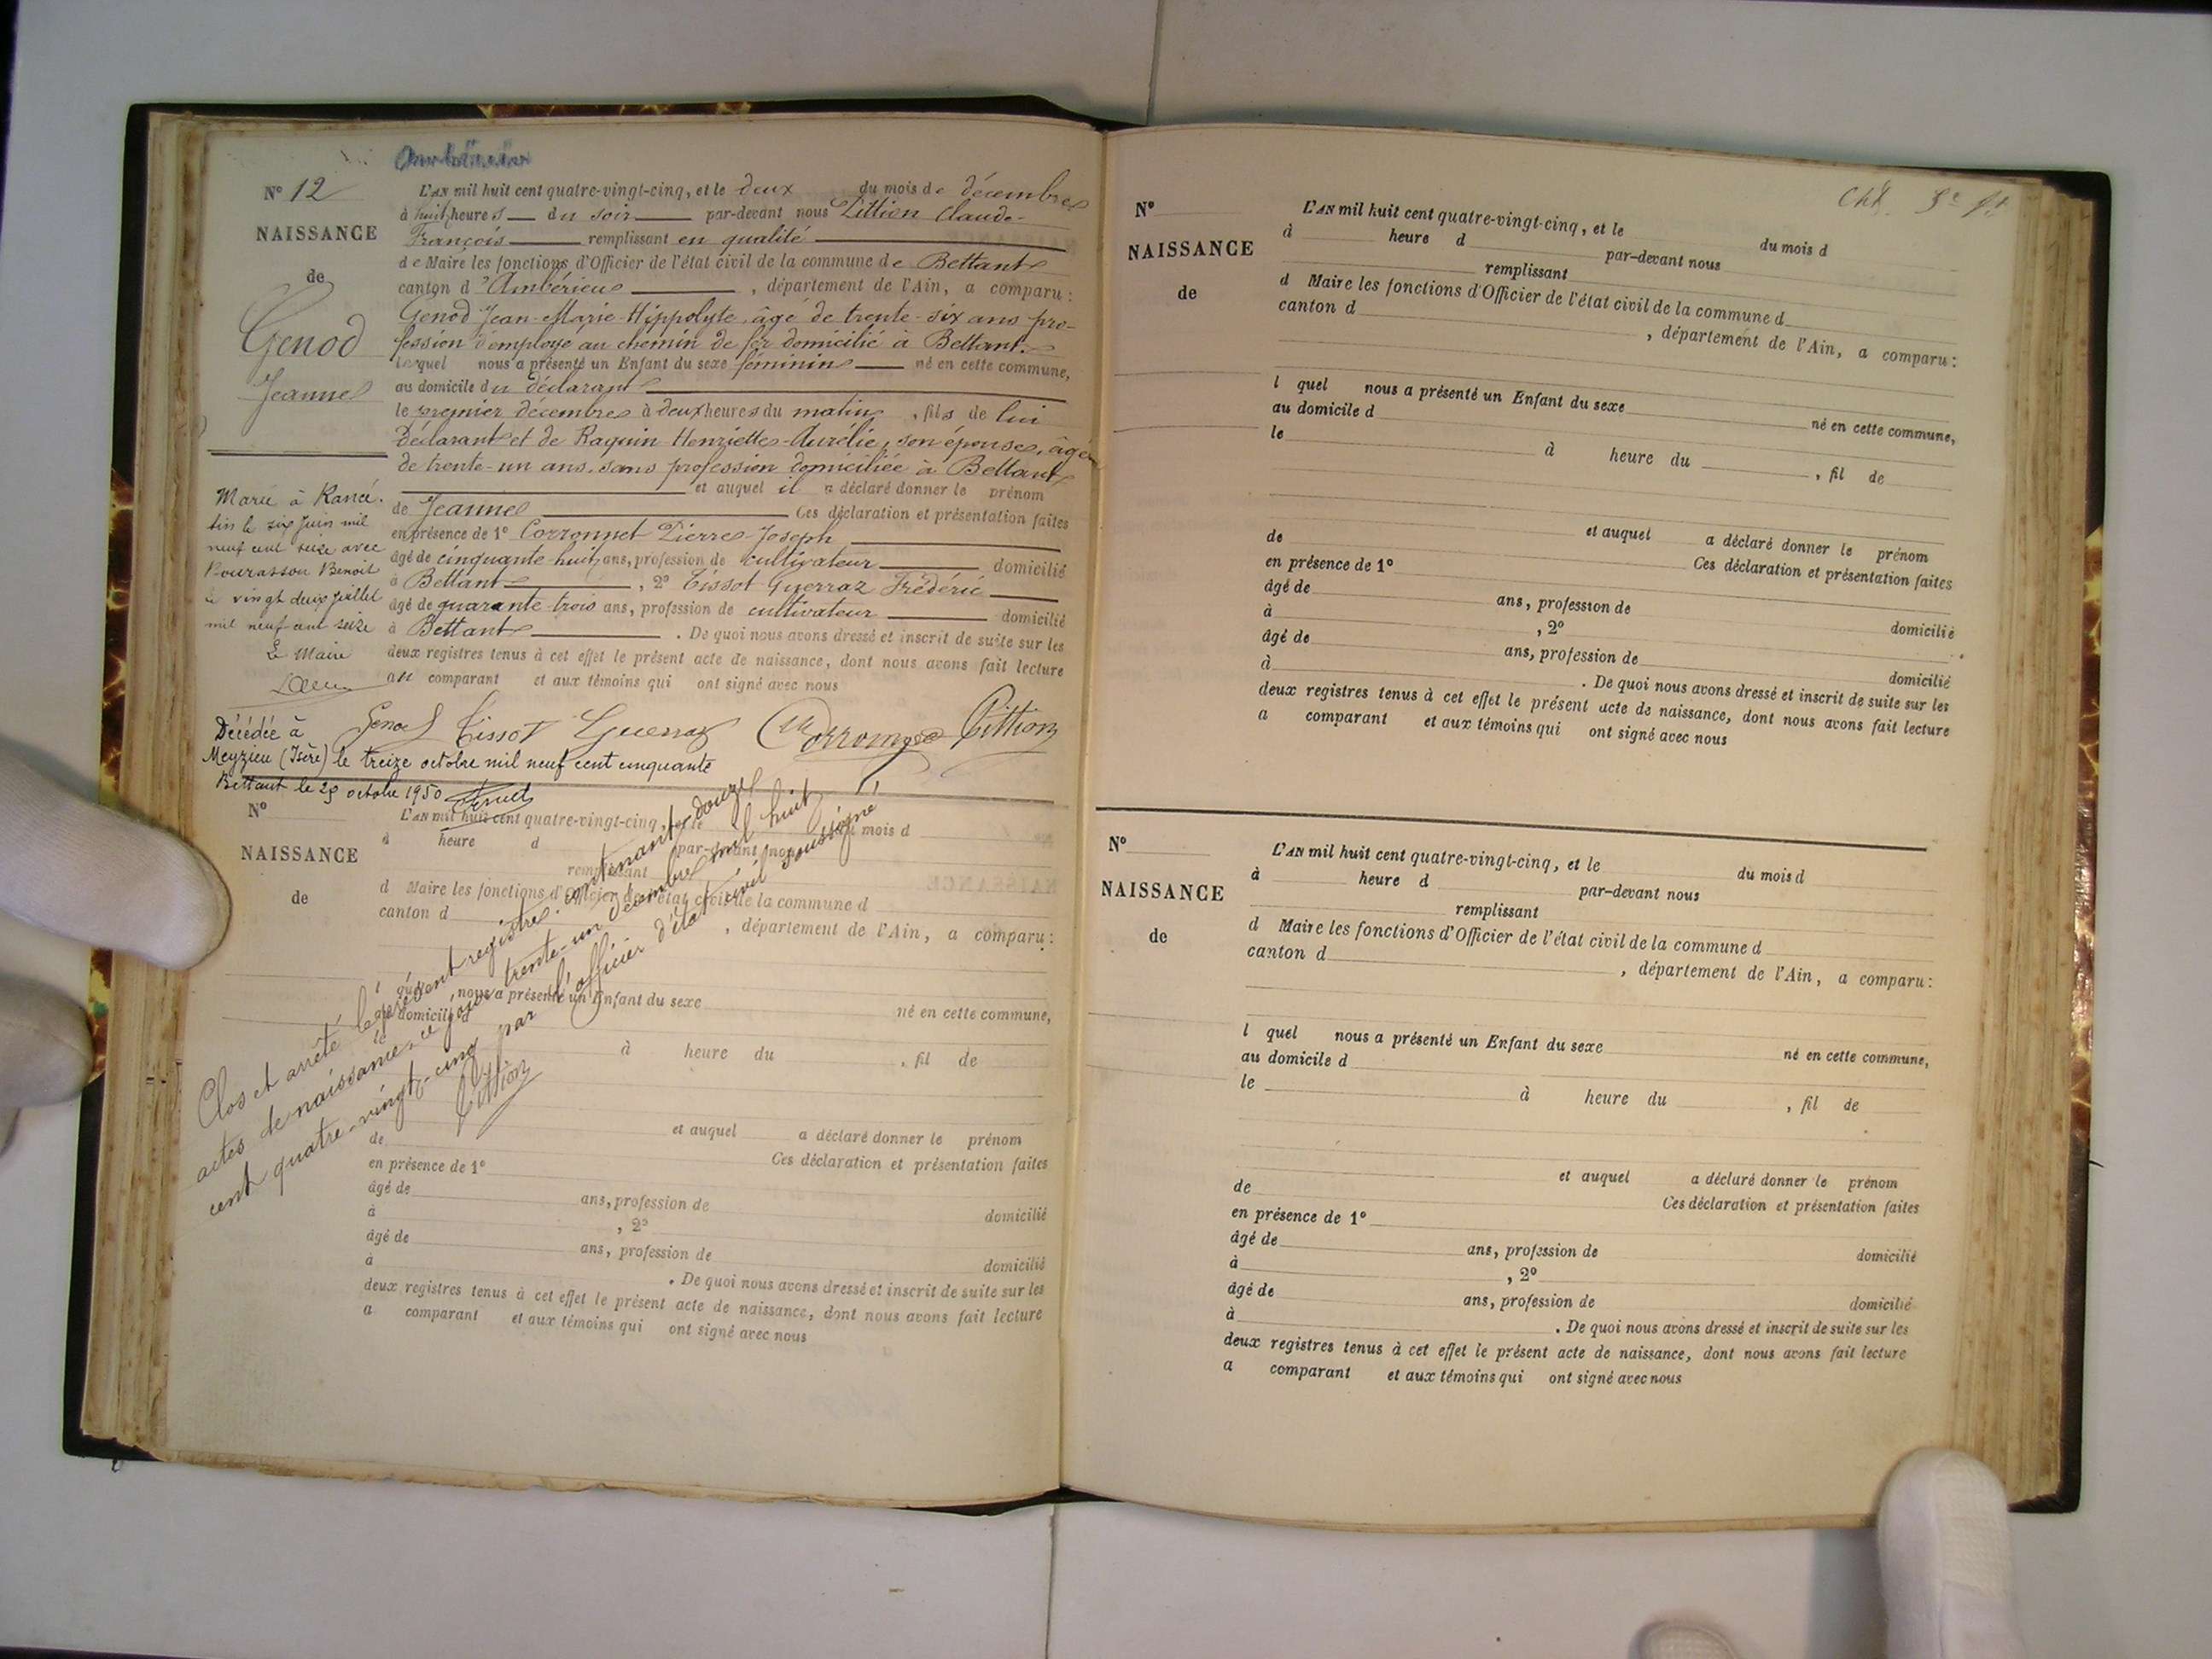 N° 12
NAISSANCE
de
Genod
Jeanne
L'AN mil huit cent quatre-vingt-cinq, et le deux du mois de décembre
à huit heures du soir par-devant nous Pittion Claude-
François remplissant en qualité
de Maire les fonctions d'Officier de l'état civil de la commune de Bettant
canton d'Ambérieu, département de l'Ain, a comparu :
Genod Jean-Marie-Hippolyte, âgé de trente-six ans pro-
fession d'employé au chemin de fer domicilié à Bettant.
lequel nous a présenté un Enfant du sexe féminin né en cette commune,
au domicile du déclarant
le premier décembre à deux heures du matin, fils de lui
Déclarant et de Raquin Henriette-Aurélie, son épouse, âgée
de trente-un ans, sans profession domiciliée à Bettant
et auquel il a déclaré donner le prénom
de Jeanne Ces déclaration et présentation faites
en présence de 1° Corronnet Pierre-Joseph
âgé de cinquante huit ans, profession de cultivateur domicilié
à Bettant, 2° Tissot Guerraz Frédéric
âgé de quarante-trois ans, profession de cultivateur domicilié
à Bettant. De quoi nous avons dressé et inscrit de suite sur les
deux registres tenus à cet effet le présent acte de naissance, dont nous avons fait lecture
au comparant et aux témoins qui ont signé avec nous
Genod Tissot Guerraz Corronnet Pittion
Marié à Rancé.
le six Juin mil
neuf cent seize avec
Pourrassou Benoit
le vingt deux juillet
mil neuf cent seize
Le Maire
Décédée à
Meyzieu (Isère) le treize octobre mil neuf cent cinquante
Bettant le 29 octobre 1950
N°
NAISSANCE
de
L'AN mil huit cent quatre-vingt-cinq, et le du mois d
à heure d par-devant nous
remplissant
d Maire les fonctions d'Officier de l'état civil de la commune d
canton d , département de l'Ain, a comparu :
l quel nous a présenté un Enfant du sexe né en cette commune,
au domicile d
le à heure du , fil de
et auquel a déclaré donner le prénom
de Ces déclaration et présentation faites
en présence de 1°
âgé de ans, profession de domicilié
à , 2°
âgé de ans, profession de domicilié
à . De quoi nous avons dressé et inscrit de suite sur les
deux registres tenus à cet effet le présent acte de naissance, dont nous avons fait lecture
a comparant et aux témoins qui ont signé avec nous
Clos et arrêté le présent registre contenant douze
actes de naissance, ce jour trente-un décembre mil huit
cent quatre-vingt-cinq par l'officier d'état civil soussigné
Pittion
N°
NAISSANCE
de
L'AN mil huit cent quatre-vingt-cinq, et le du mois d
à heure d par-devant nous
remplissant
d Maire les fonctions d'Officier de l'état civil de la commune d
canton d , département de l'Ain, a comparu :
l quel nous a présenté un Enfant du sexe né en cette commune,
au domicile d
le à heure du , fil de
et auquel a déclaré donner le prénom
de Ces déclaration et présentation faites
en présence de 1°
âgé de ans, profession de domicilié
à , 2°
âgé de ans, profession de domicilié
à . De quoi nous avons dressé et inscrit de suite sur les
deux registres tenus à cet effet le présent acte de naissance, dont nous avons fait lecture
a comparant et aux témoins qui ont signé avec nous
N°
NAISSANCE
de
L'AN mil huit cent quatre-vingt-cinq, et le du mois d
à heure d par-devant nous
remplissant
d Maire les fonctions d'Officier de l'état civil de la commune d
canton d , département de l'Ain, a comparu :
l quel nous a présenté un Enfant du sexe né en cette commune,
au domicile d
le à heure du , fil de
et auquel a déclaré donner le prénom
de Ces déclaration et présentation faites
en présence de 1°
âgé de ans, profession de domicilié
à , 2°
âgé de ans, profession de domicilié
à . De quoi nous avons dressé et inscrit de suite sur les
deux registres tenus à cet effet le présent acte de naissance, dont nous avons fait lecture
a comparant et aux témoins qui ont signé avec nous